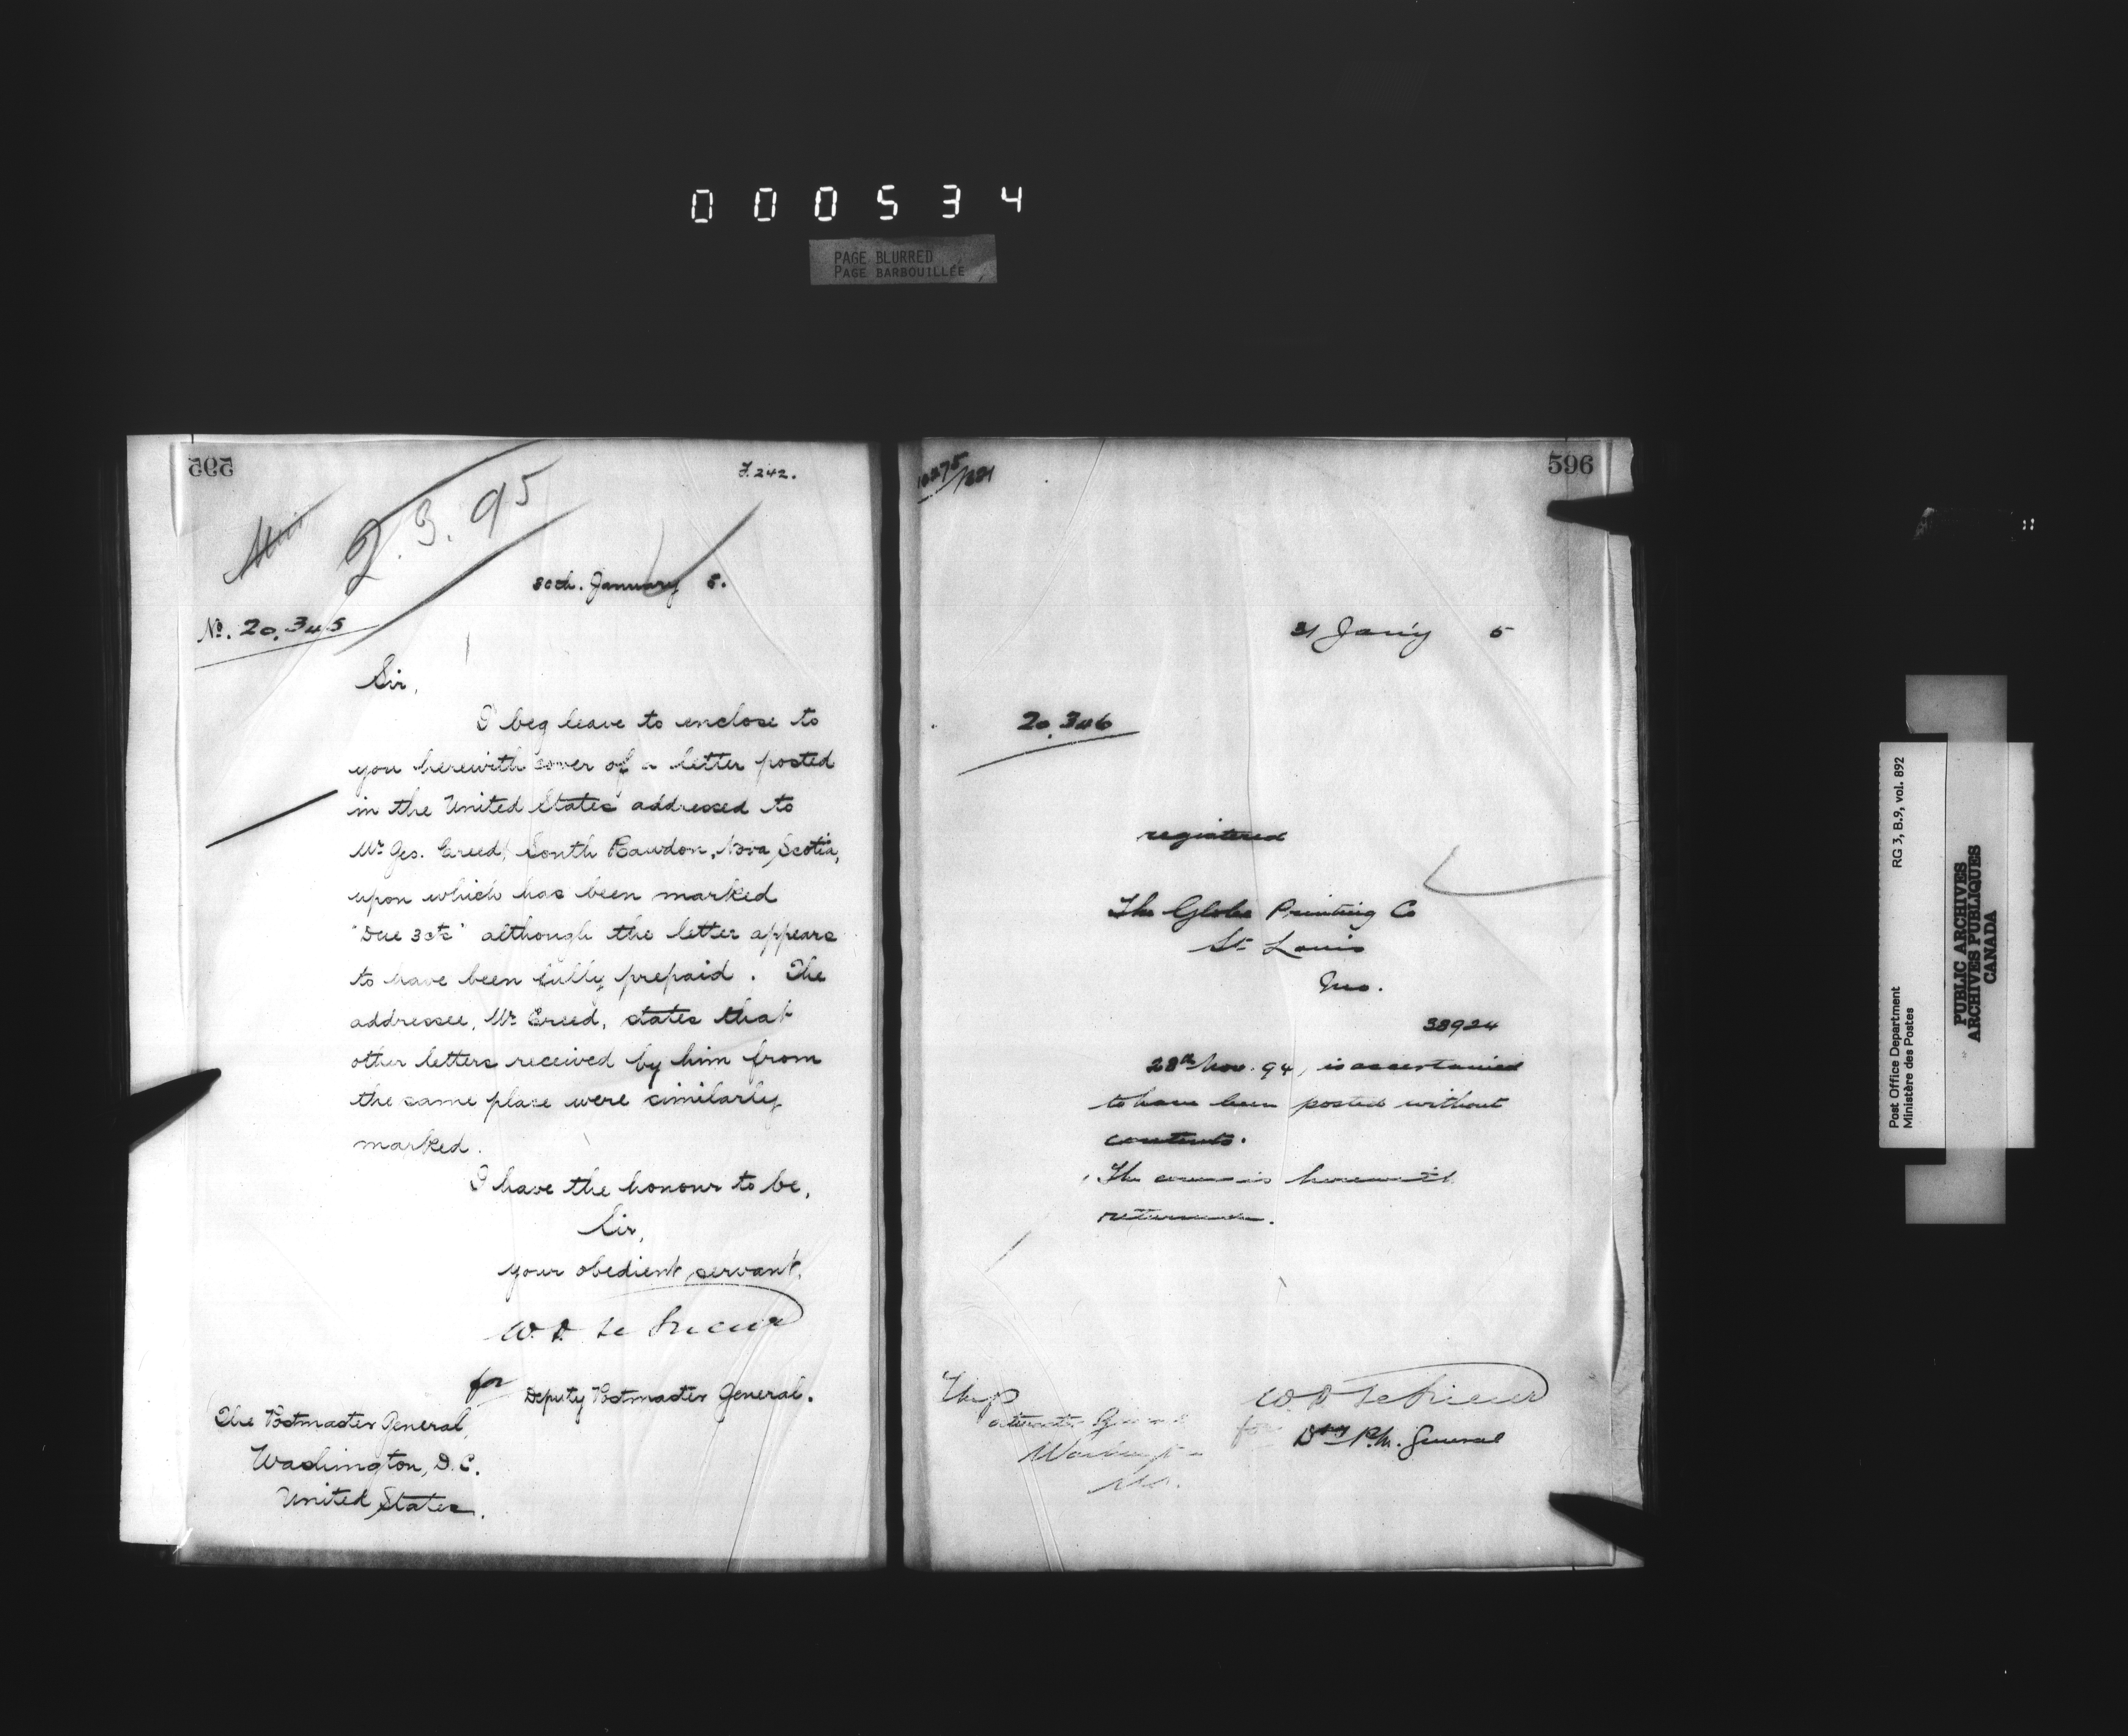 000534
PAGE BLURRED
PAGE BARBOUILLÉE
595
F. 242.
2.3.95
30th. January 5.
No. 20,345
Sir,
I beg leave to enclose to
you herewith cover of a letter posted
in the United States addressed to
Mr Geo. Creed, South Rawdon, Nova Scotia,
upon which has been marked
"Due 3cts" although the letter appears
to have been fully prepaid. The
addressee, Mr Creed, states that
other letters received by him from
the same place were similarly
marked.
I have the honour to be,
Sir,
your obedient servant,
W. D. Le Sueur
for
Deputy Postmaster General.
The Postmaster General,
Washington, D.C.
United States.
596
31 Jan'y 5
20,346
registered
The Globe Printing Co
St Louis
Mo.
38924
28th Nov. 94, is ascertained
to have been posted without
contents.
The cover is herewith
returned.
W. D. Le Sueur
for Dpy P.M. General
The P
Washington
Post Office Department
Ministère des Postes
RG 3, B.9, vol. 892
PUBLIC ARCHIVES
ARCHIVES PUBLIQUES
CANADA